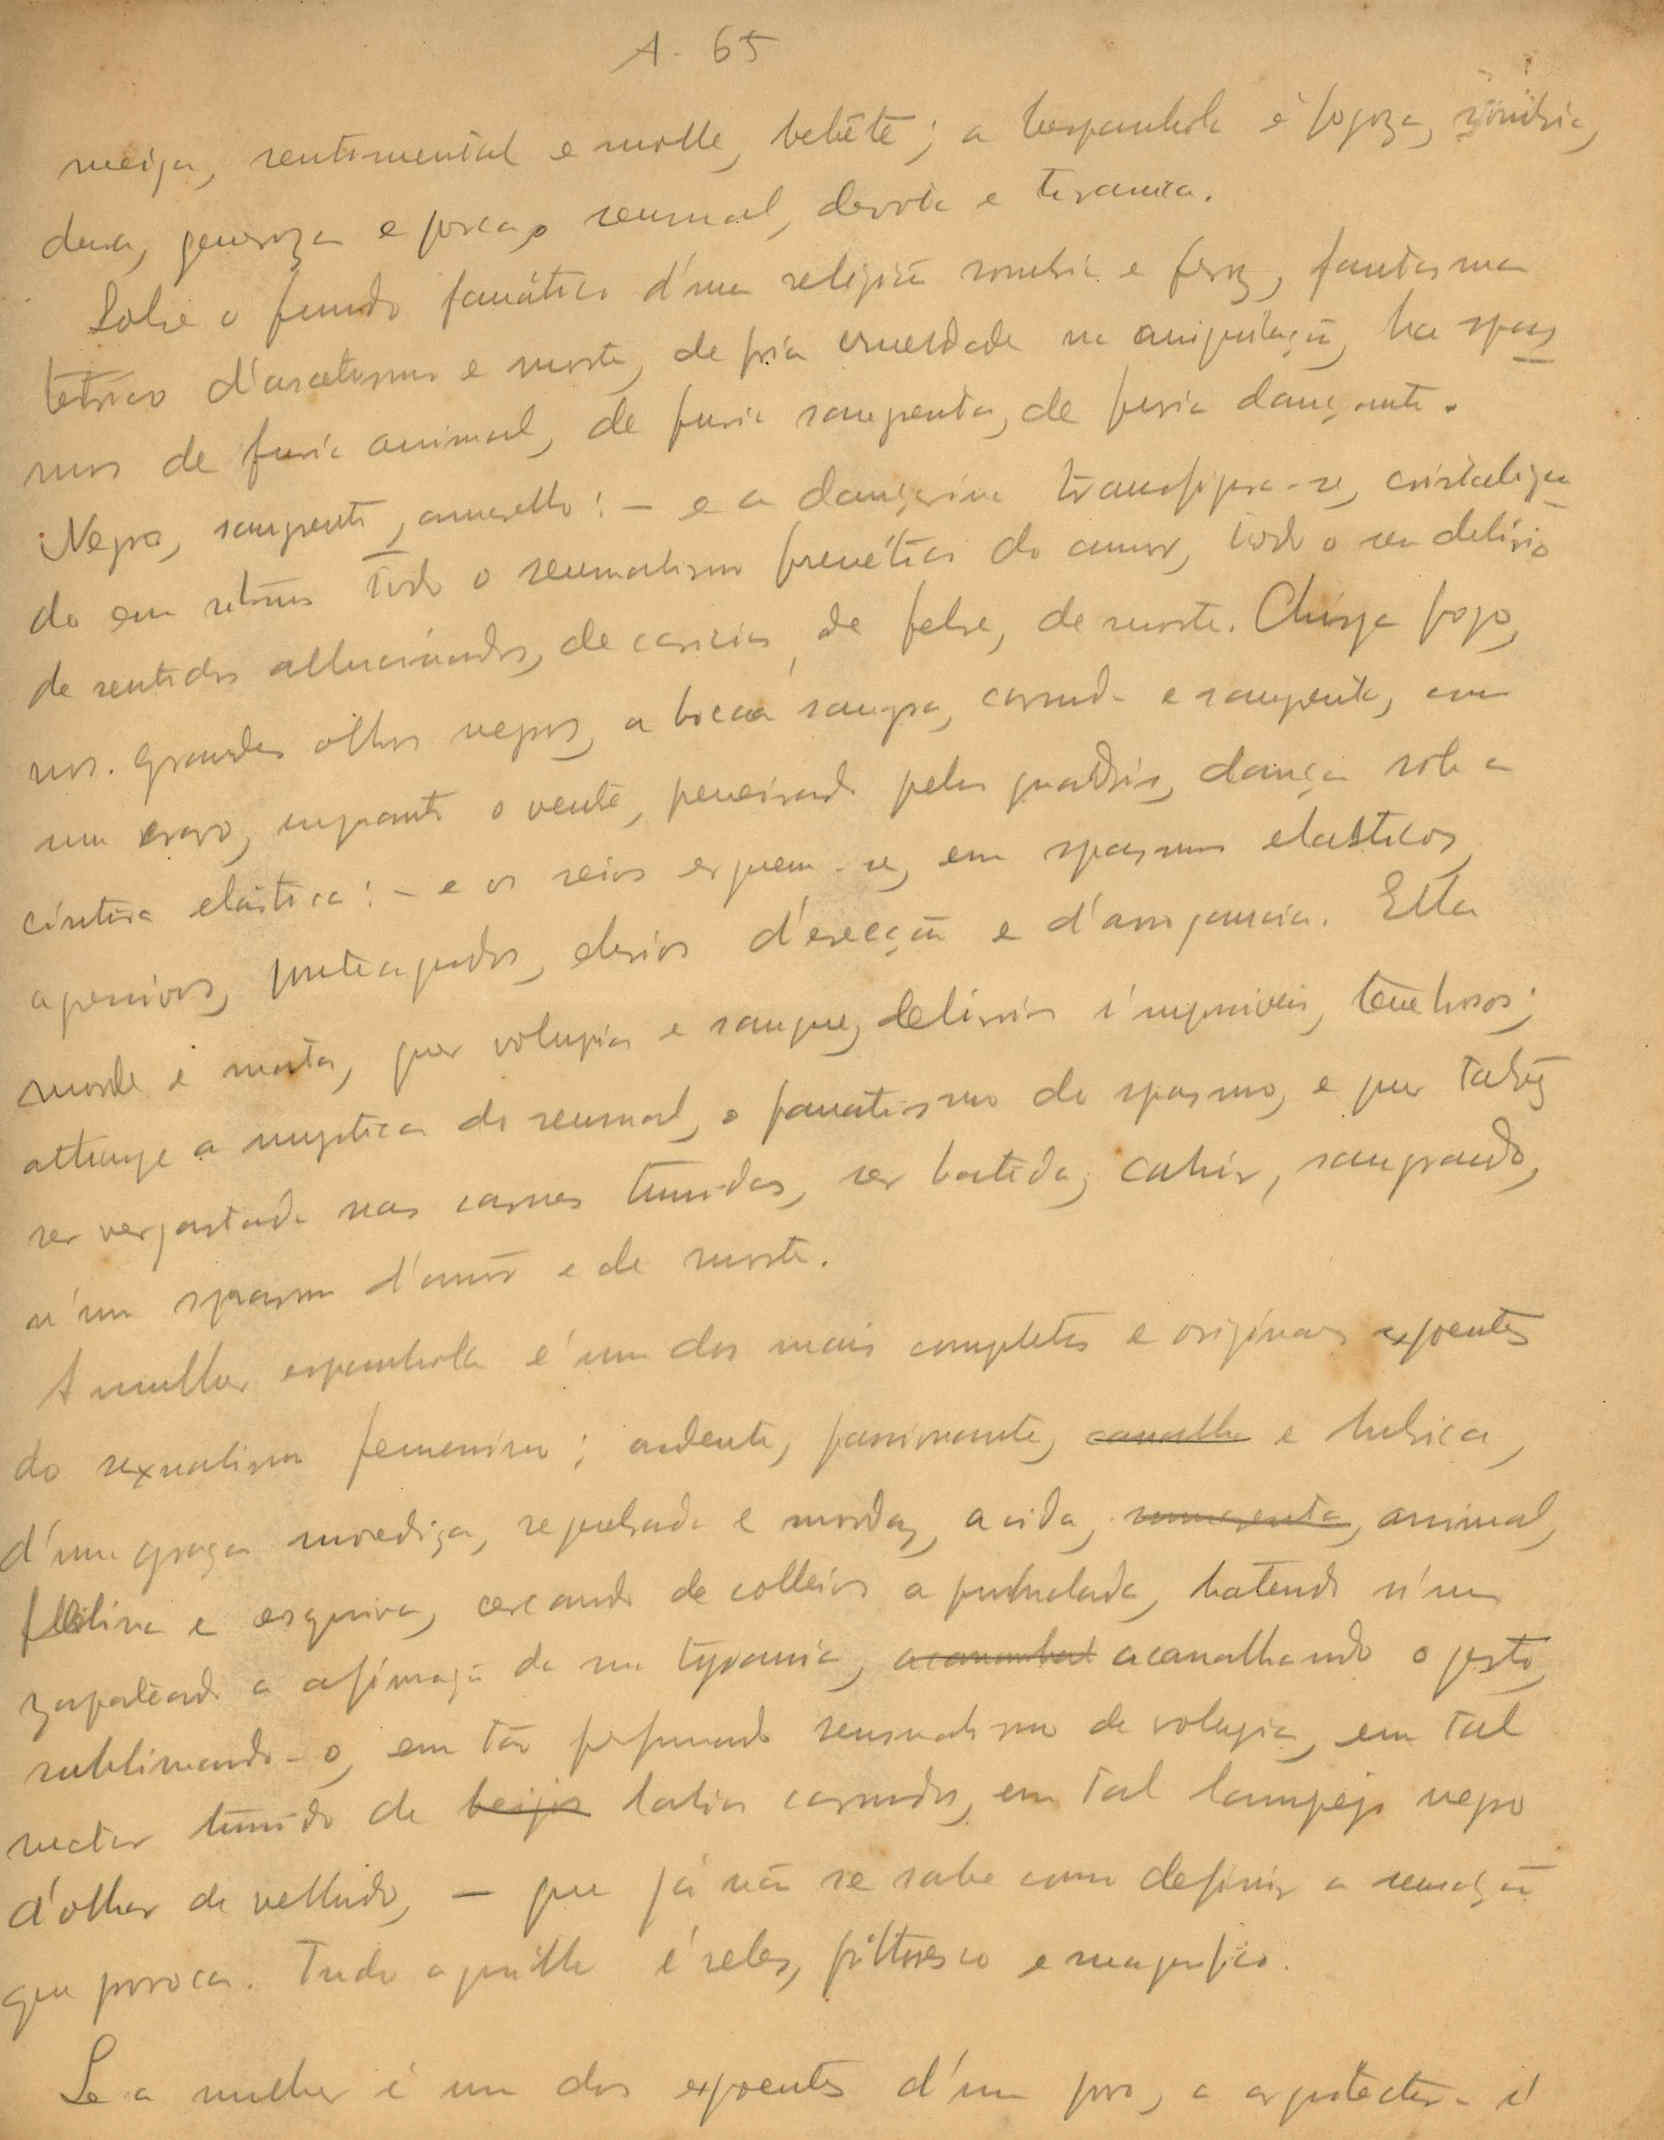 A - 65
meiga, sentimental e molle, bebête; a hespanhola é fogoza, sombria,
dura, generoza e porca, sensual, devota e tiranica.
Sobre o fundo fanático d'uma religião sombria e feroz, fantasma
tétrico d'ascetismo e morte, de fria crueldade na aniquilação, ha spas
mos de furia animal, de furia sangrenta, de furia dançante.
Negro, sangrento, amarello! - e a dançarina transfigura-se, cristaliza
do em todo o sensualismo frenético do amor, todo o seu delirio
de sentidos allucinados, de caricias, de febre, de morte. Chispa fogo,
nos grandes olhos negros, a bocca sangra, carnuda e sangrenta, como
um cravo, emquanto o ventre, peneirando pelos quadris, dança sob a
cintura elastica! - e os seios erguem-se, em spasmos elasticos,
agressivos, ponteagudos, cheios d'erecção e d'arrogancia. Ella
morde e mata, quer volupia e sangue, delirios imprevisiveis, tenebrosos;
attinge a mystica do sensual, o fanatismo do spasmo, e quer talvez
ser vergastada nas carnes tumidas, ser batida, cahir, sangrando,
n'um spasmo d'amor e de morte.
A mulher espanhola é um dos mais completos e originaes expoentes
do sexualismo femenino; ardente, passionante, canalha e lubrica,
d'uma graça movediça, requebrada e mordaz, acida, animal,
felina e esquiva, cercando de colleios a punhalada, batendo n'um
zapateado a afirmação da sua tyrania, acanalhando o gesto,
sublimando-o, em tão perfumado sensualismo de volupia, em tal
nectar tumido de beijos labios carnudos, em tal lampejo negro
d'olhar de velludo, - que já não se sabe como definir a sensação
que provoca. Tudo aquillo é reles, pittoresco e magnifico.
Se a mulher é um dos expoentes d'um povo, a arquitectura é